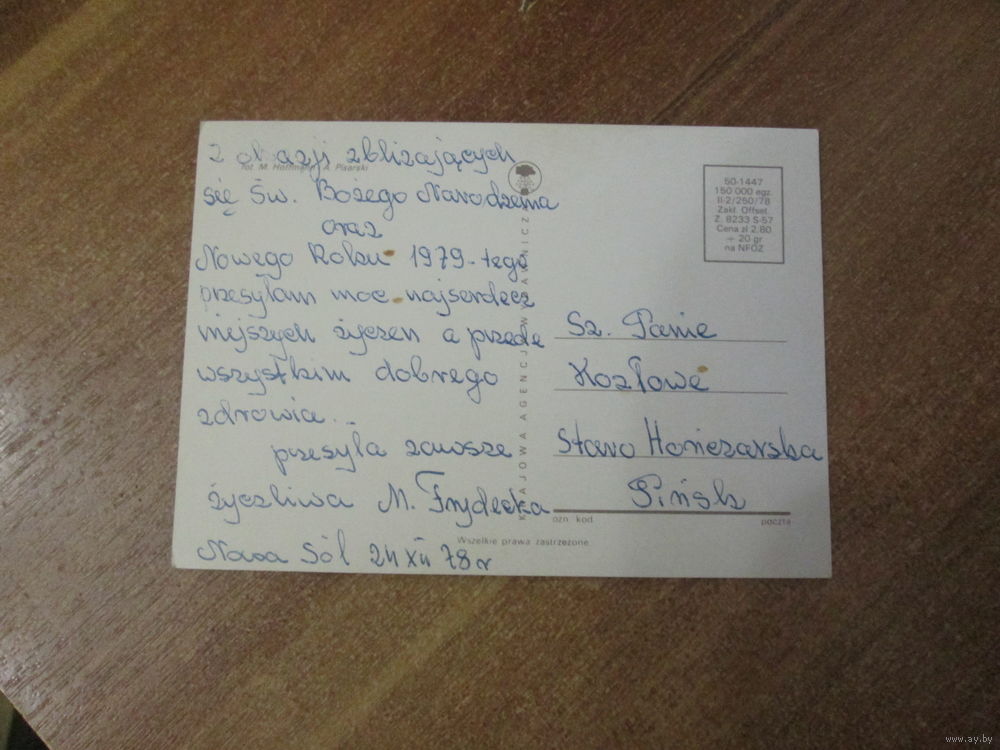 Z okazji zbliżających
fot. M. Hoffmann, A. Pisarski
się Św. Bożego Narodzenia
oraz
Nowego Roku 1979-tego
przesyłam moc najserdecz
niejszych życzeń a przede
wszystkim dobrego
zdrowia..
przesyła zawsze
życzliwa M. Frydecka
Nowa Sól 24 XII 78 r
KRAJOWA AGENCJA WYDAWNICZA
50-1447
150 000 egz.
II-2/250/78
Zakł. Offset.
Z. 8233 S-57
Cena zł 2.80
+ 20 gr
na NFOZ
Sz. Panie
Kozłowe
Staro Honczarska
Pińsk
ozn. kod.
poczta
Wszelkie prawa zastrzeżone
www.ay.by